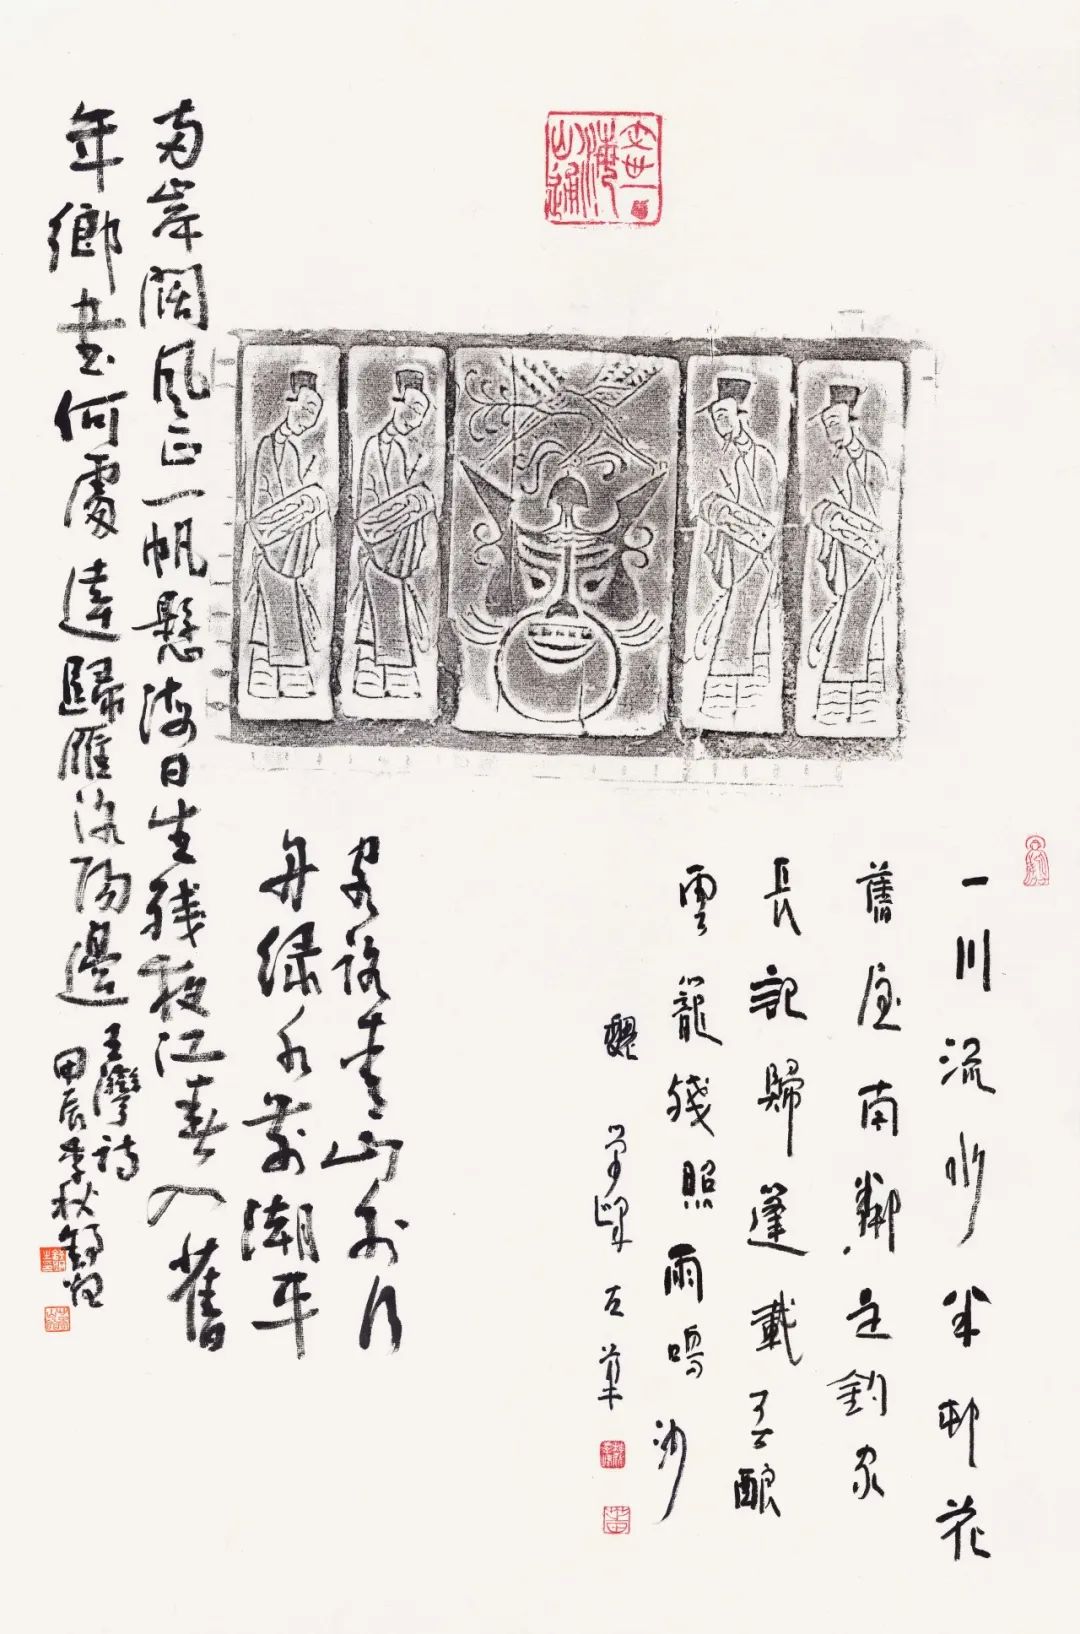 一川流水半邨花
舊屋南鄰是釣家
長記歸蓬載釀
雲籠殘照雨鳴沙
魏學峰
客路青山外行
舟綠水前潮平
兩岸闊風正一帆懸海日生殘夜江春入舊
年鄉書何處達歸雁洛陽邊
王灣詩
甲辰季秋舒炯